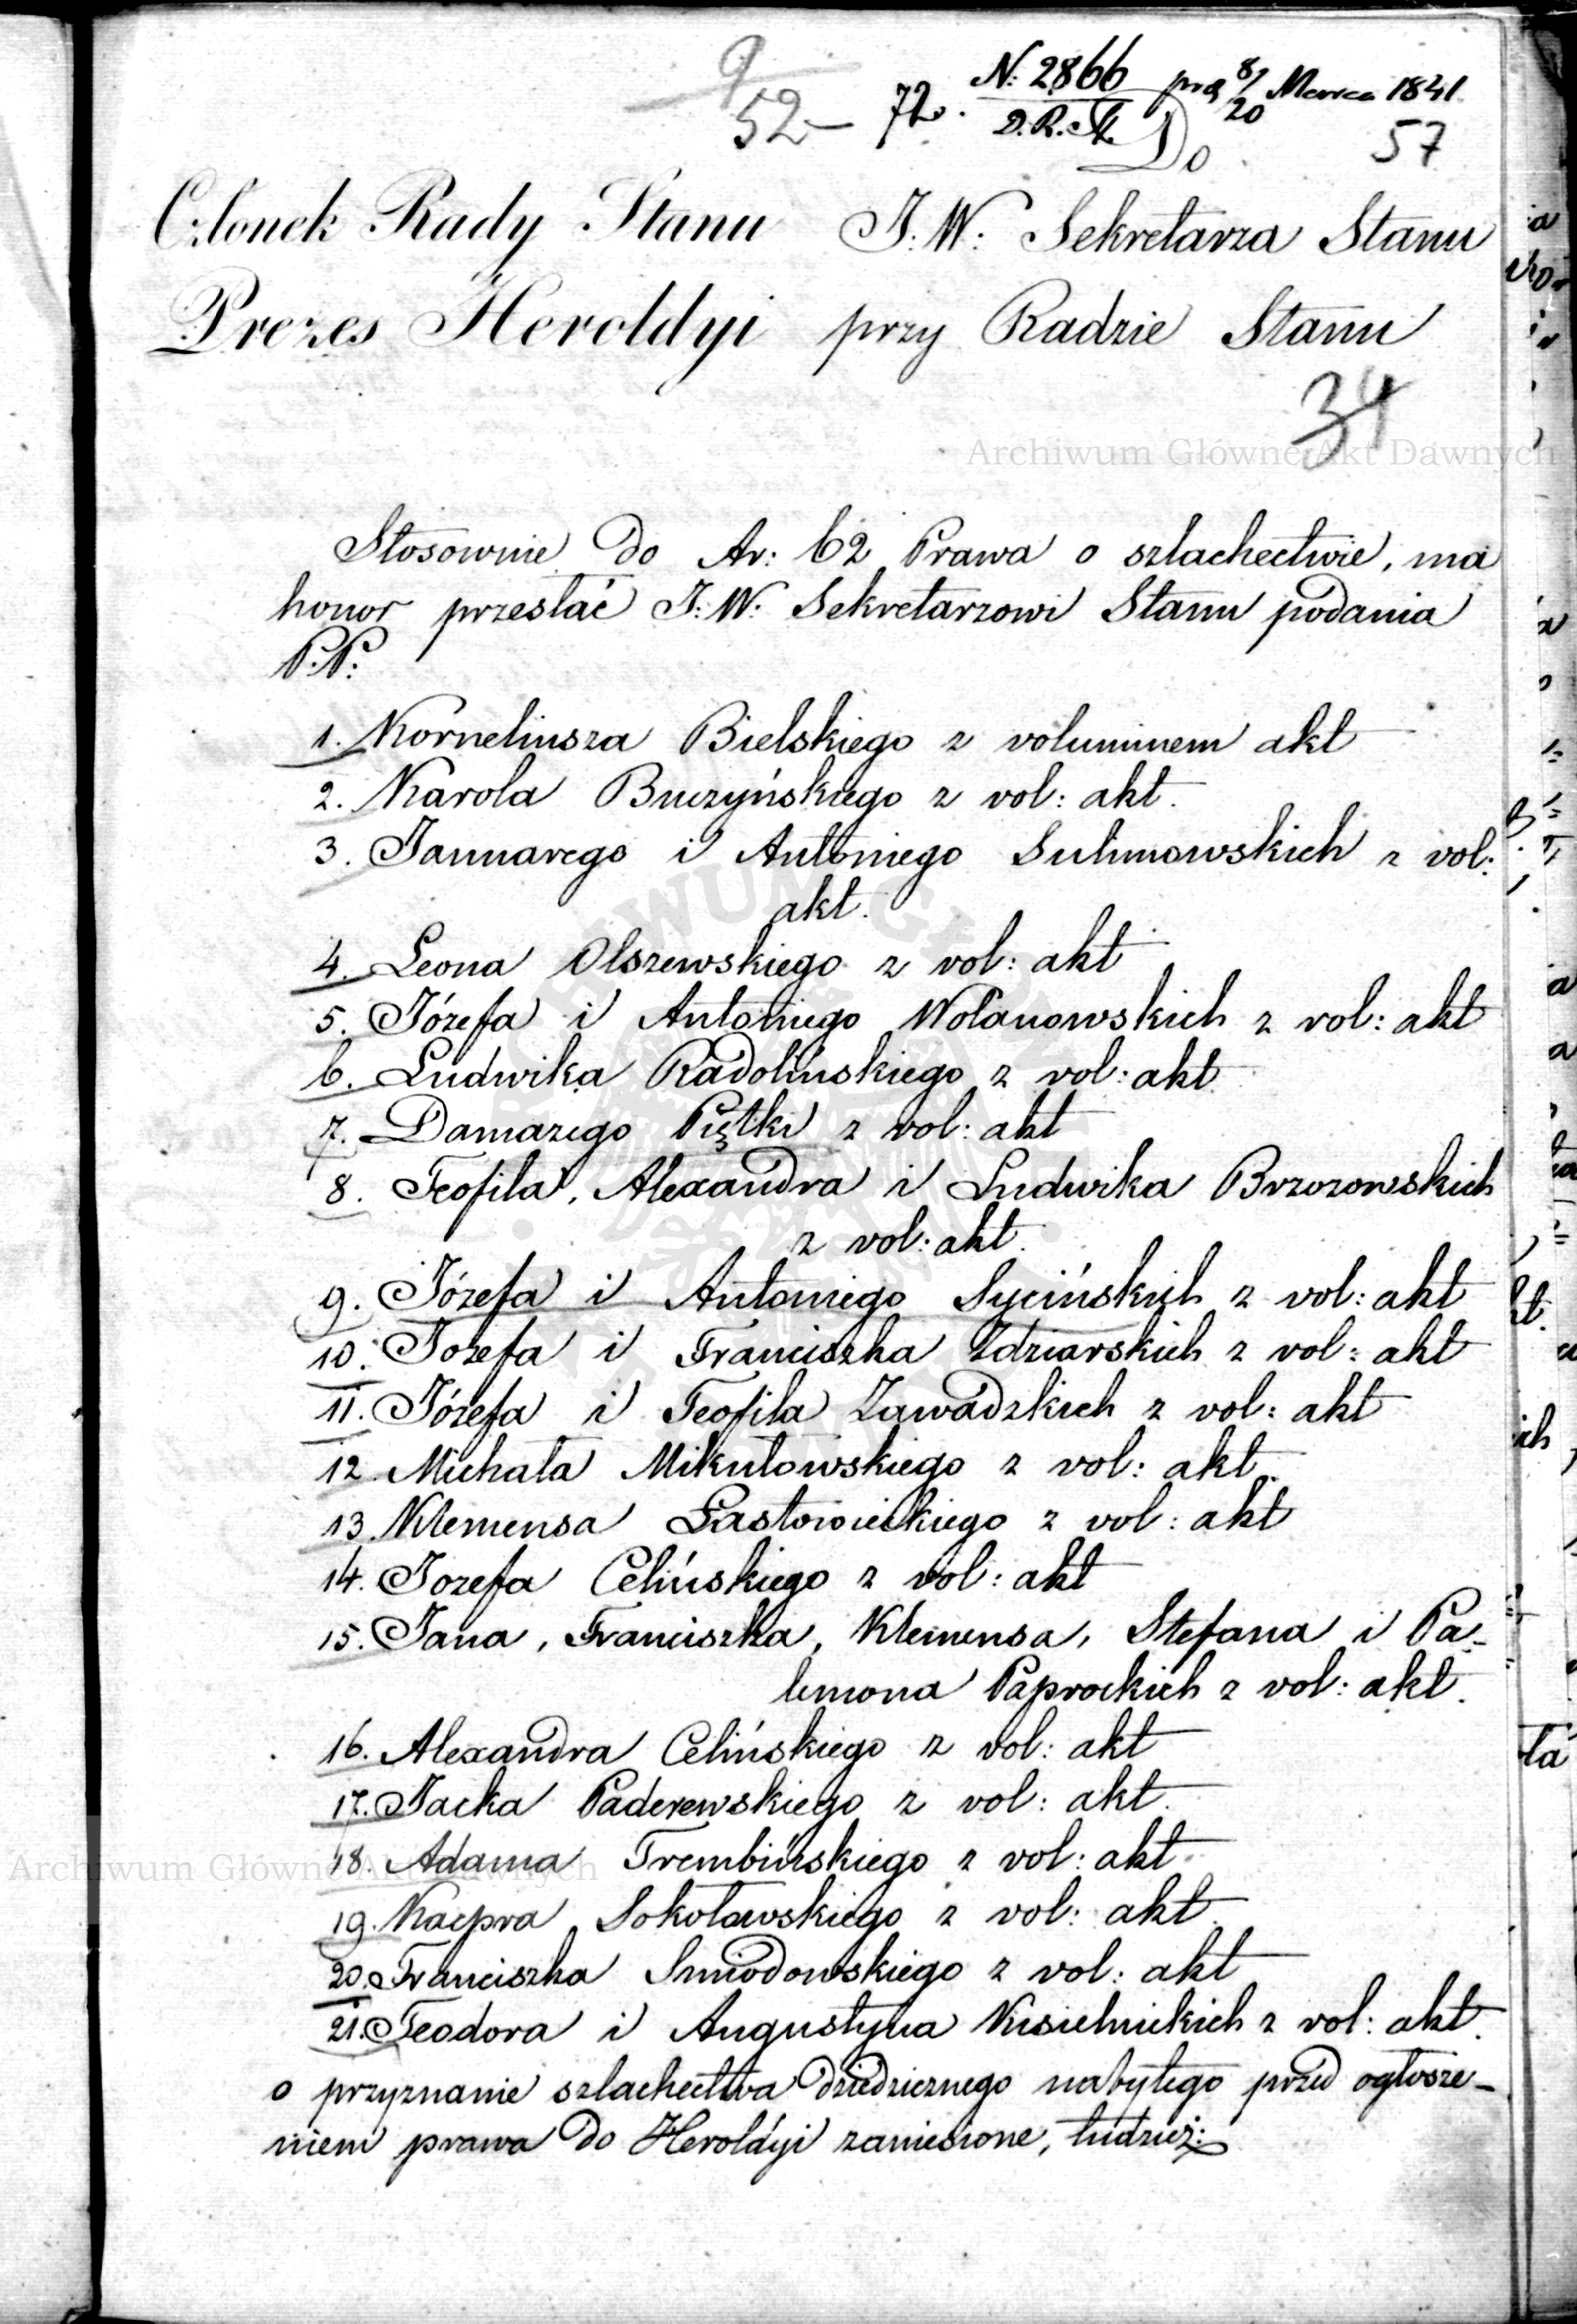 9
52 72. N: 2866 prą 8/20 Marca 1841
D.R.St. 57
Do
Członek Rady Stanu J.W. Sekretarza Stanu
Prezes Heroldyi przy Radzie Stanu
34
Archiwum Główne Akt Dawnych
Stosownie do Ar: 62 Prawa o szlachectwie, ma
honor przesłać J:W: Sekretarzowi Stanu podania
P.P:
1. Korneliusza Bielskiego z voluminem akt
2. Karola Buczyńskiego z vol: akt.
3. Januarego i Antoniego Sulimowskich z vol:
akt.
4. Leona Olszewskiego z vol: akt
5. Józefa i Antoniego Wolanowskich z vol: akt
6. Ludwika Radolińskiego z vol: akt
7. Damazego Piętki z vol: akt
8. Teofila, Alexandra i Ludwika Brzozowskich
z vol: akt.
9. Józefa i Antoniego Sycińskich z vol: akt
10. Józefa i Franciszka Zdziarskich z vol: akt
11. Józefa i Teofila Zawadzkich z vol: akt
12. Michała Mikułowskiego z vol: akt.
13. Klemensa Łastowieckiego z vol: akt
14. Jozefa Celińskiego z vol: akt
15. Jana, Franciszka, Klemensa, Stefana i Pa-
lemona Paprockich z vol: akt.
16. Alexandra Celińskiego z vol: akt
17. Jacka Paderewskiego z vol: akt.
18. Adama Trembińskiego z vol: akt.
Archiwum Główne Akt Dawnych
19. Kacpra Sokołowskiego z vol: akt.
20. Franciszka Smiodowskiego z vol: akt
21. Teodora i Augustyna Kisielnickich z vol: akt.
o przyznanie szlachectwa dziedzicznego nabytego przed ogłosze-
niem prawa do Heroldyi zaniesione, tudzież: